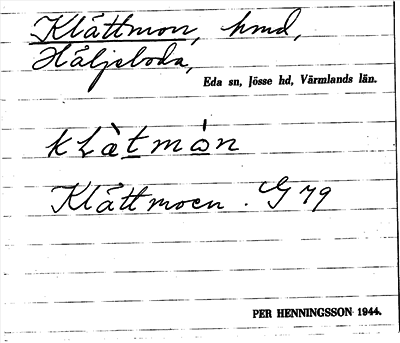 Klåttmon, hmd,
Häljeboda,
Eda sn, Jösse hd, Värmlands län.
klàtmón
Klåttmoen. G 79
PER HENNINGSSON 1944.